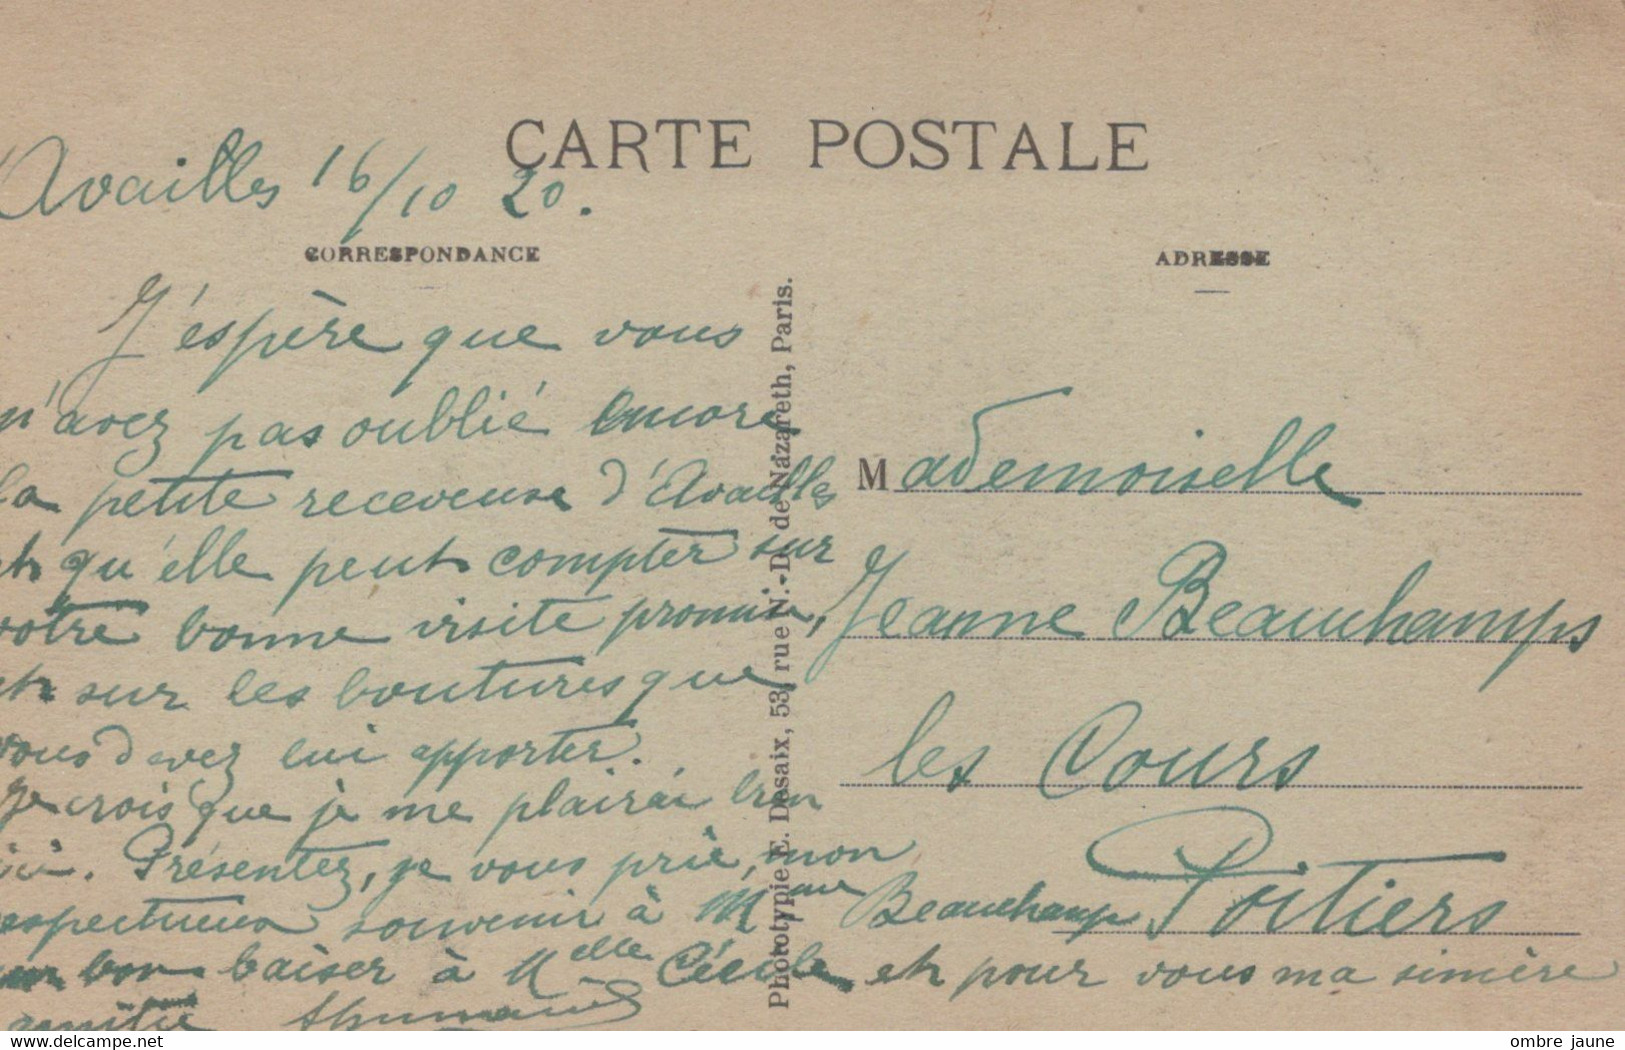 CARTE POSTALE
Availles 16/10 20.
CORRESPONDANCE
ADRESSE
J'espère que vous
n'avez pas oublié encore
la petite receveuse d'Availles
et qu'elle peut compter sur
votre bonne visite promise,
et sur les boutures que
vous devez lui apporter.
Je crois que je me plairai bien
ici. Présentez, je vous prie, mon
respectueux souvenir à Mme Beauchamps
un bon baiser à Melle Cécile et pour vous ma sincère
amitié
Phototypie E. Desaix, 53, rue N.-D. de Nazareth, Paris.
Mademoiselle
Jeanne Beauchamps
les Cours
Poitiers
www.delcampe.net
ombre jaune